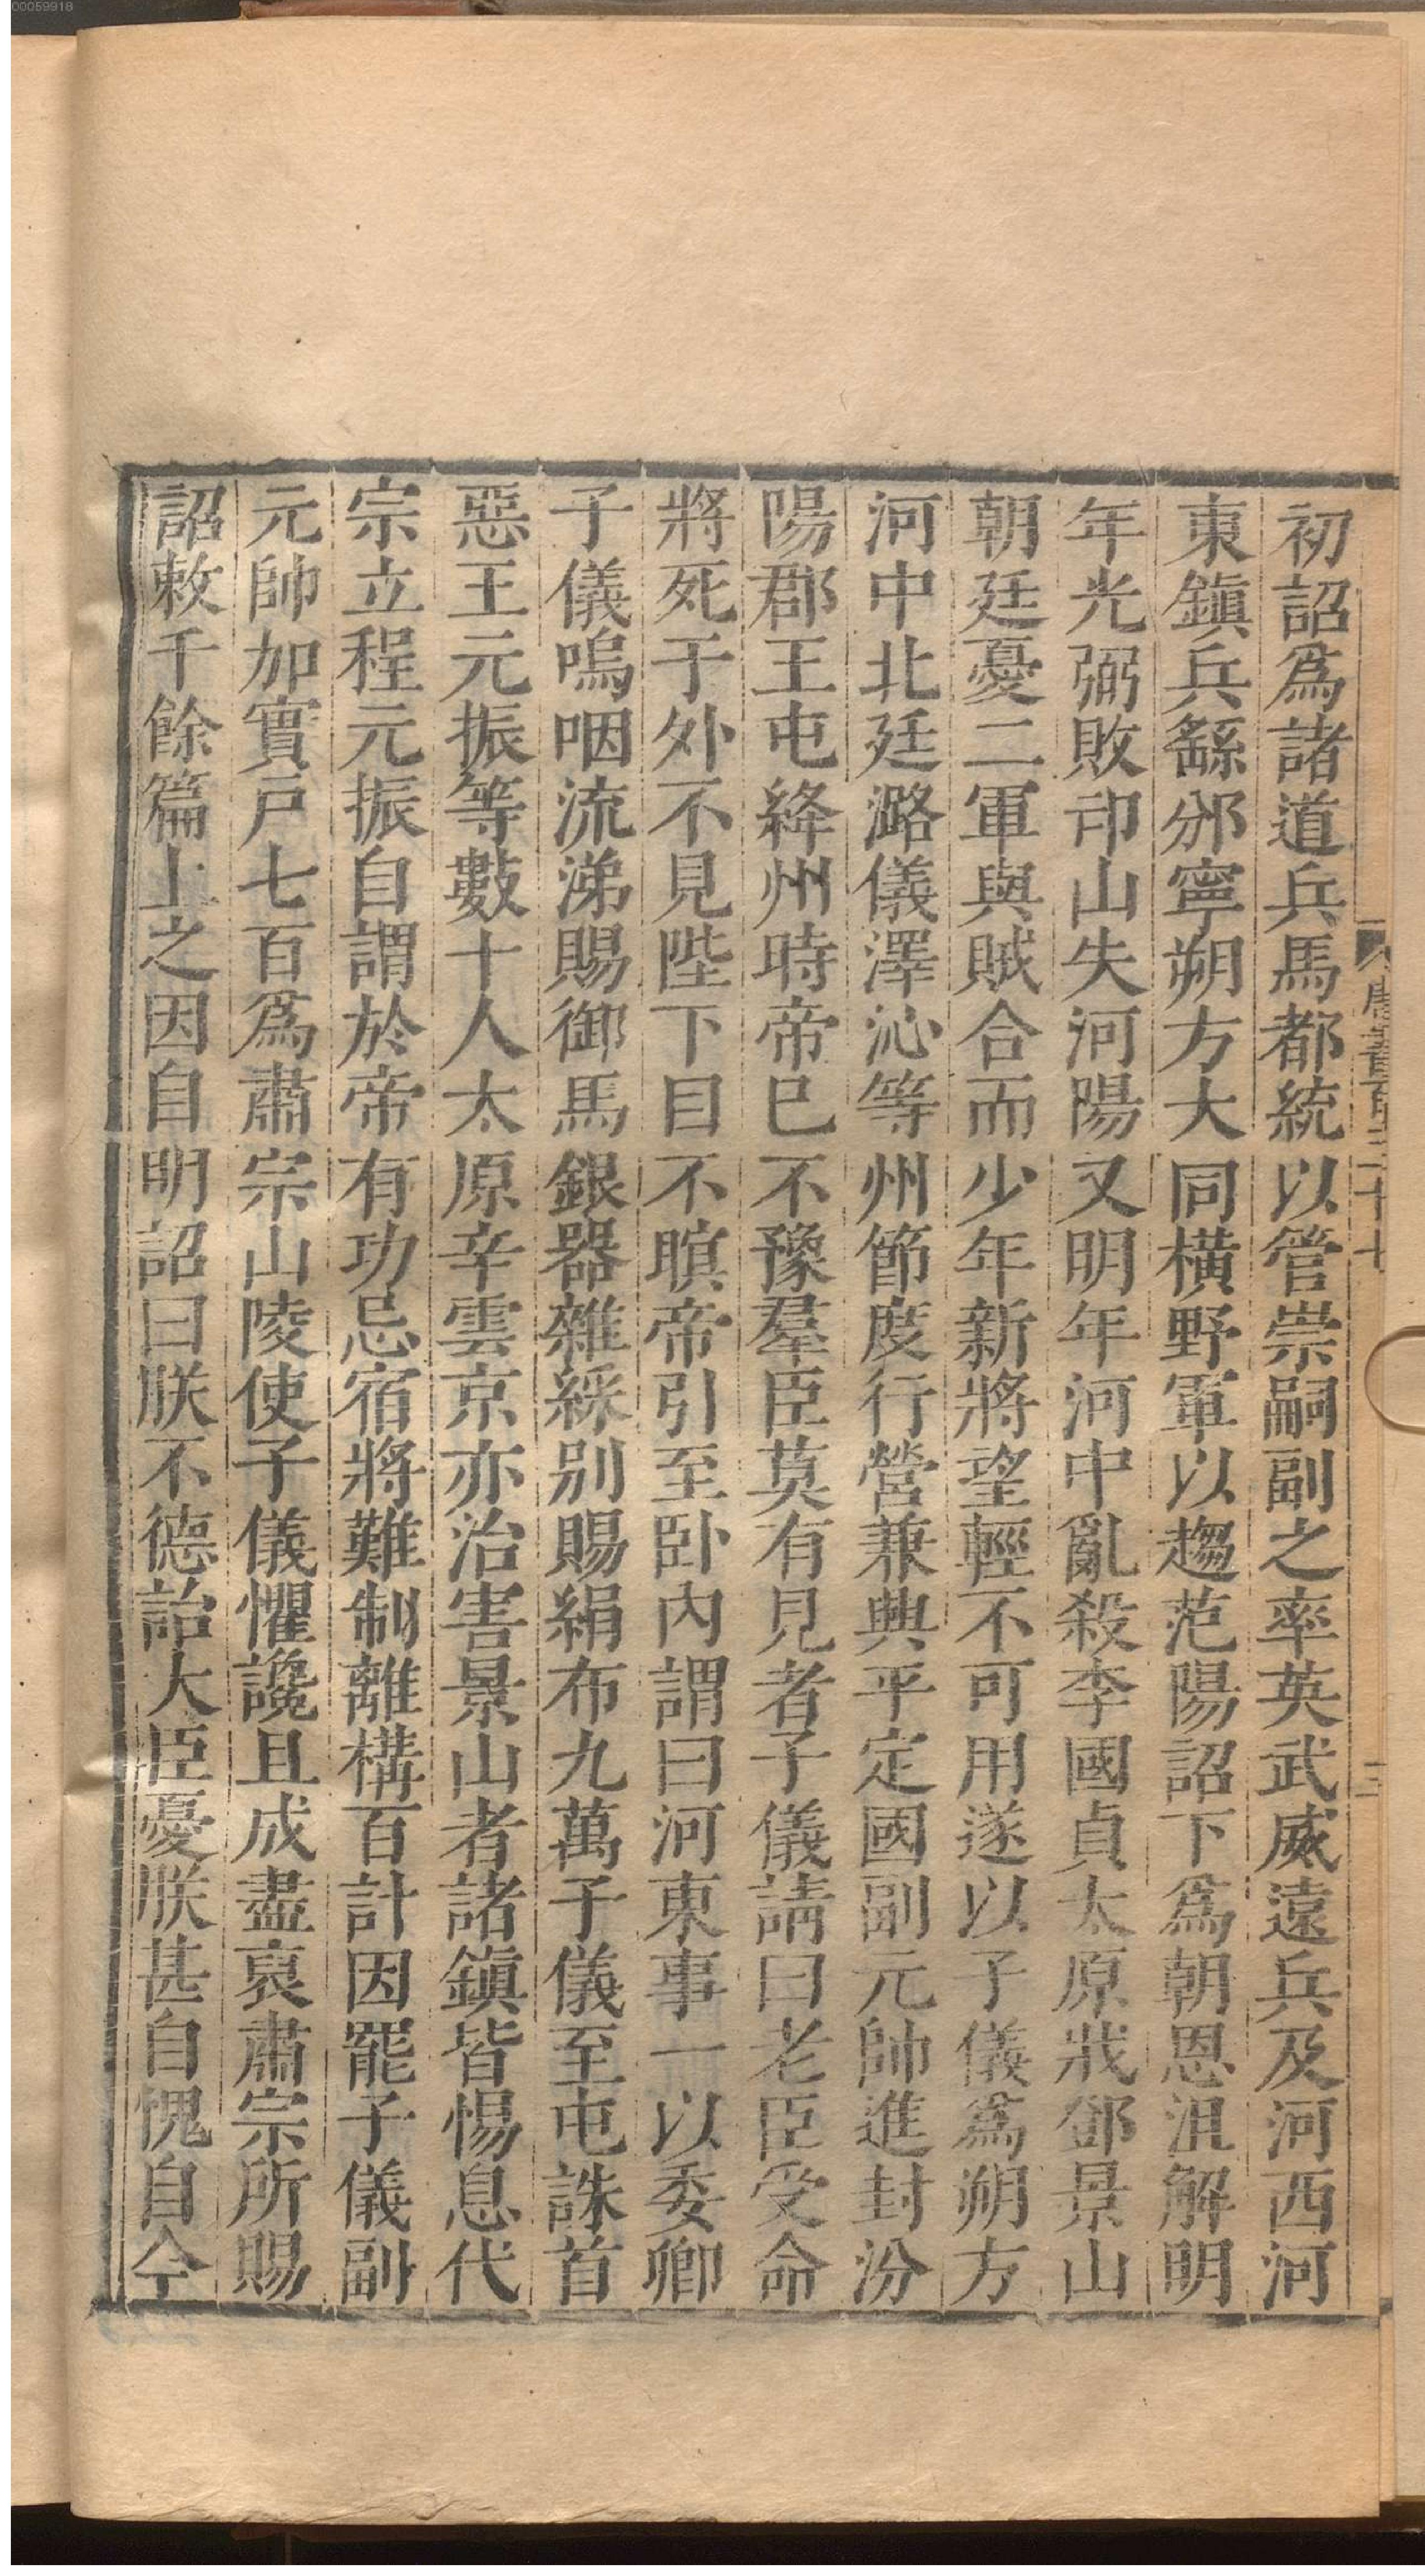 初詔爲諸道兵馬都統以管崇嗣副之率英武威遠兵及河西河
東鎭兵繇邠寧朔方大同橫野軍以趨范陽詔下爲朝恩沮解明
年光弼敗卬山失河陽又明年河中亂殺李國貞太原戕鄧景山
朝廷憂二軍與賊合而少年新將望輕不可用遂以子儀爲朔方
河中北廷潞儀澤沁等州節度行營兼興平定國副元帥進封汾
陽郡王屯絳州時帝巳不豫羣臣莫有見者子儀請曰老臣受命
將死于外不見陛下目不瞑帝引至臥內謂曰河東事一以委卿
子儀嗚咽流涕賜御馬銀器雜綵別賜絹布九萬子儀至屯誅首
惡王元振等數十人太原辛雲京亦治害景山者諸鎭皆惕息代
宗立程元振自謂於帝有功忌宿將難制離構百計因罷子儀副
元帥加實戶七百爲肅宗山陵使子儀懼讒且成盡裒肅宗所賜
詔敕千餘篇上之因自明詔曰朕不德詒大臣憂朕甚自愧自今
唐書百三十七
三
00059918